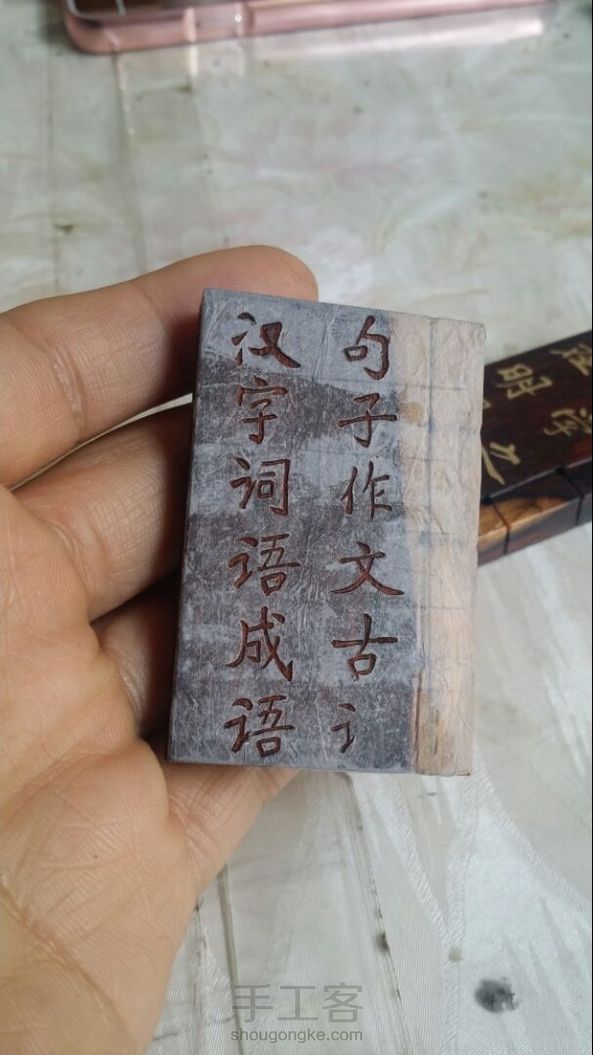 汉字词语成语
句子作文古讠
手工客
shougongke.com